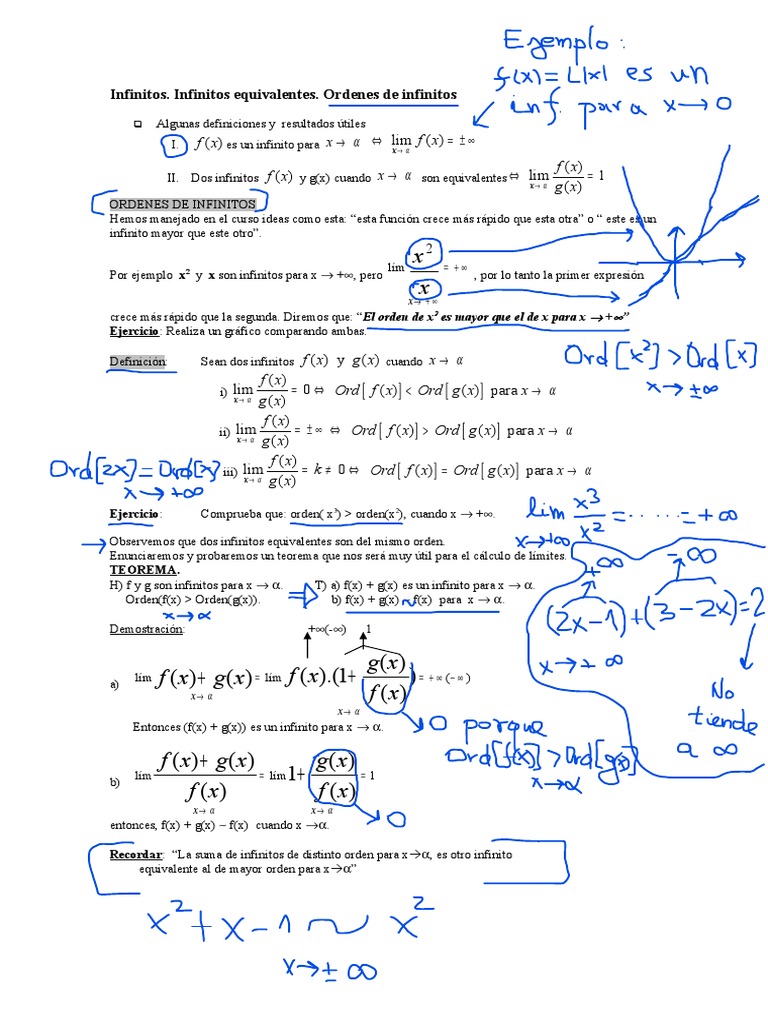 Ejemplo:
f(x) = L|x| es un
inf. para x → 0
Infinitos. Infinitos equivalentes. Ordenes de infinitos
❑ Algunas definiciones y resultados útiles
I. f(x) es un infinito para x → α ⇔ lim f(x) = ±∞
x→ α
II. Dos infinitos f(x) y g(x) cuando x → α son equivalentes ⇔ lim f(x)/g(x) = 1
x→ α
ORDENES DE INFINITOS
Hemos manejado en el curso ideas como esta: “esta función crece más rápido que esta otra” o “ este es un
infinito mayor que este otro”.
Por ejemplo x² y x son infinitos para x → +∞, pero lim x²/x = +∞ , por lo tanto la primer expresión
x→ +∞
crece más rápido que la segunda. Diremos que: “El orden de x² es mayor que el de x para x → +∞”
Ejercicio: Realiza un gráfico comparando ambas.
Ord[x²] > Ord[x]
x → ±∞
Definición: Sean dos infinitos f(x) y g(x) cuando x → α
i) lim f(x)/g(x) = 0 ⇔ Ord[f(x)] < Ord[g(x)] para x → α
x→ α
ii) lim f(x)/g(x) = ±∞ ⇔ Ord[f(x)] > Ord[g(x)] para x → α
x→ α
Ord[2x] = Ord[x]
x → +∞
iii) lim f(x)/g(x) = k ≠ 0 ⇔ Ord[f(x)] = Ord[g(x)] para x → α
x→ α
Ejercicio: Comprueba que: orden( x³) > orden(x²), cuando x → +∞.
lim x³/x² = ...... = +∞
x→+∞
Observemos que dos infinitos equivalentes son del mismo orden.
Enunciaremos y probaremos un teorema que nos será muy útil para el cálculo de límites.
TEOREMA.
H) f y g son infinitos para x → α. T) a) f(x) + g(x) es un infinito para x → α.
Orden(f(x) > Orden(g(x)). b) f(x) + g(x) ~ f(x) para x → α.
x → α
+∞ -∞
(2x-1)+(3-2x)=2
x → +∞
No
tiende
a ∞
Demostración: +∞(-∞) 1
a) lim f(x)+ g(x) = lim f(x).(1+ g(x)/f(x)) = +∞ (-∞)
x→ α x→ α
0 porque
Ord[f(x)] > Ord[g(x)]
x→α
Entonces (f(x) + g(x)) es un infinito para x → α.
b) lim f(x)+ g(x)/f(x) = lim 1+ g(x)/f(x) = 1
x→ α x→ α
0
entonces, f(x) + g(x) ~ f(x) cuando x →α.
Recordar: “La suma de infinitos de distinto orden para x→α, es otro infinito
equivalente al de mayor orden para x→α”
x² + x - 1 ~ x²
x → ±∞